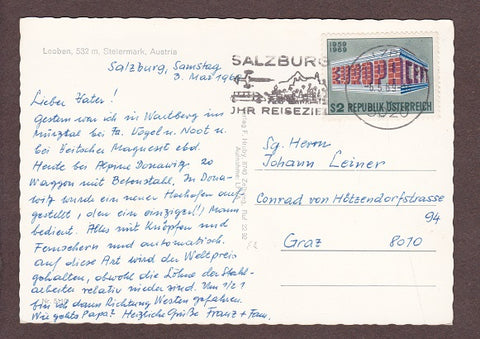 Leoben, 532 m, Steiermark, Austria
Salzburg, Samstag
3. Mai 196
Lieber Vater!
Gestern war ich in Wartberg im
Mürztal bei Fa. Vogel u. Noot u.
bei Veitscher Magnesit ebd.
Heute bei Alpine Donawitz 20
Waggon mit Bebenstahl, In Dona-
witz wurde ein neuer Hochofen auf-
gestellt, den ein einziger(!) Mann
bedient. Alles mit Knöpfen und
Fernsehern und automatisch.
Auf diese Art wird der Weltpreis
gehalten, obwohl die Löhne der Stahl-
arbeiter relativ nieder sind. Um 1/2 1
bin ich dann Richtung Westen gefahren.
Wie gehts Papa? Herzliche Grüße Franz + Fam.
SALZBURG
IHR REISEZIEL
1959
1969
EUROPA CEPT
S2 REPUBLIK ÖSTERREICH
5020
Sg. Herrn
Johann Leiner
Conrad von Hötzendorfstrasse
94
Graz 8010